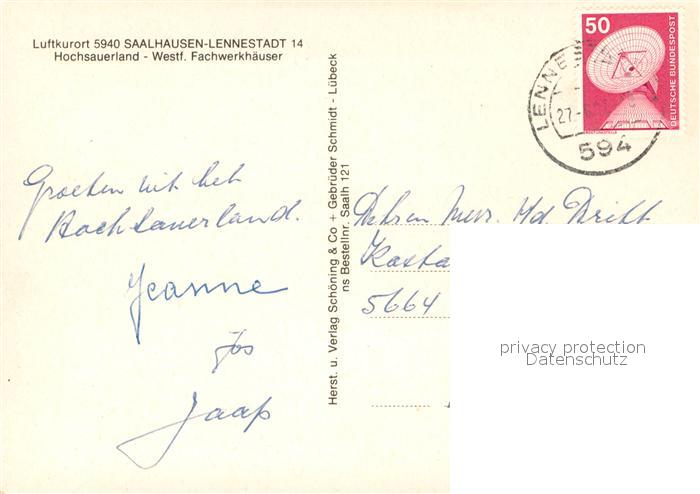 Luftkurort 5940 SAALHAUSEN-LENNESTADT 14
Hochsauerland - Westf. Fachwerkhäuser
50
DEUTSCHE BUNDESPOST
LENNE
27.
594
Groeten uit het
Hochsauerland.
Jeanne
Jos
Jaap
Herst. u. Verlag Schöning & Co + Gebrüder Schmidt - Lübeck
ns Bestellnr. Saalh 121
Mevr. v/d
5664
privacy protection
Datenschutz